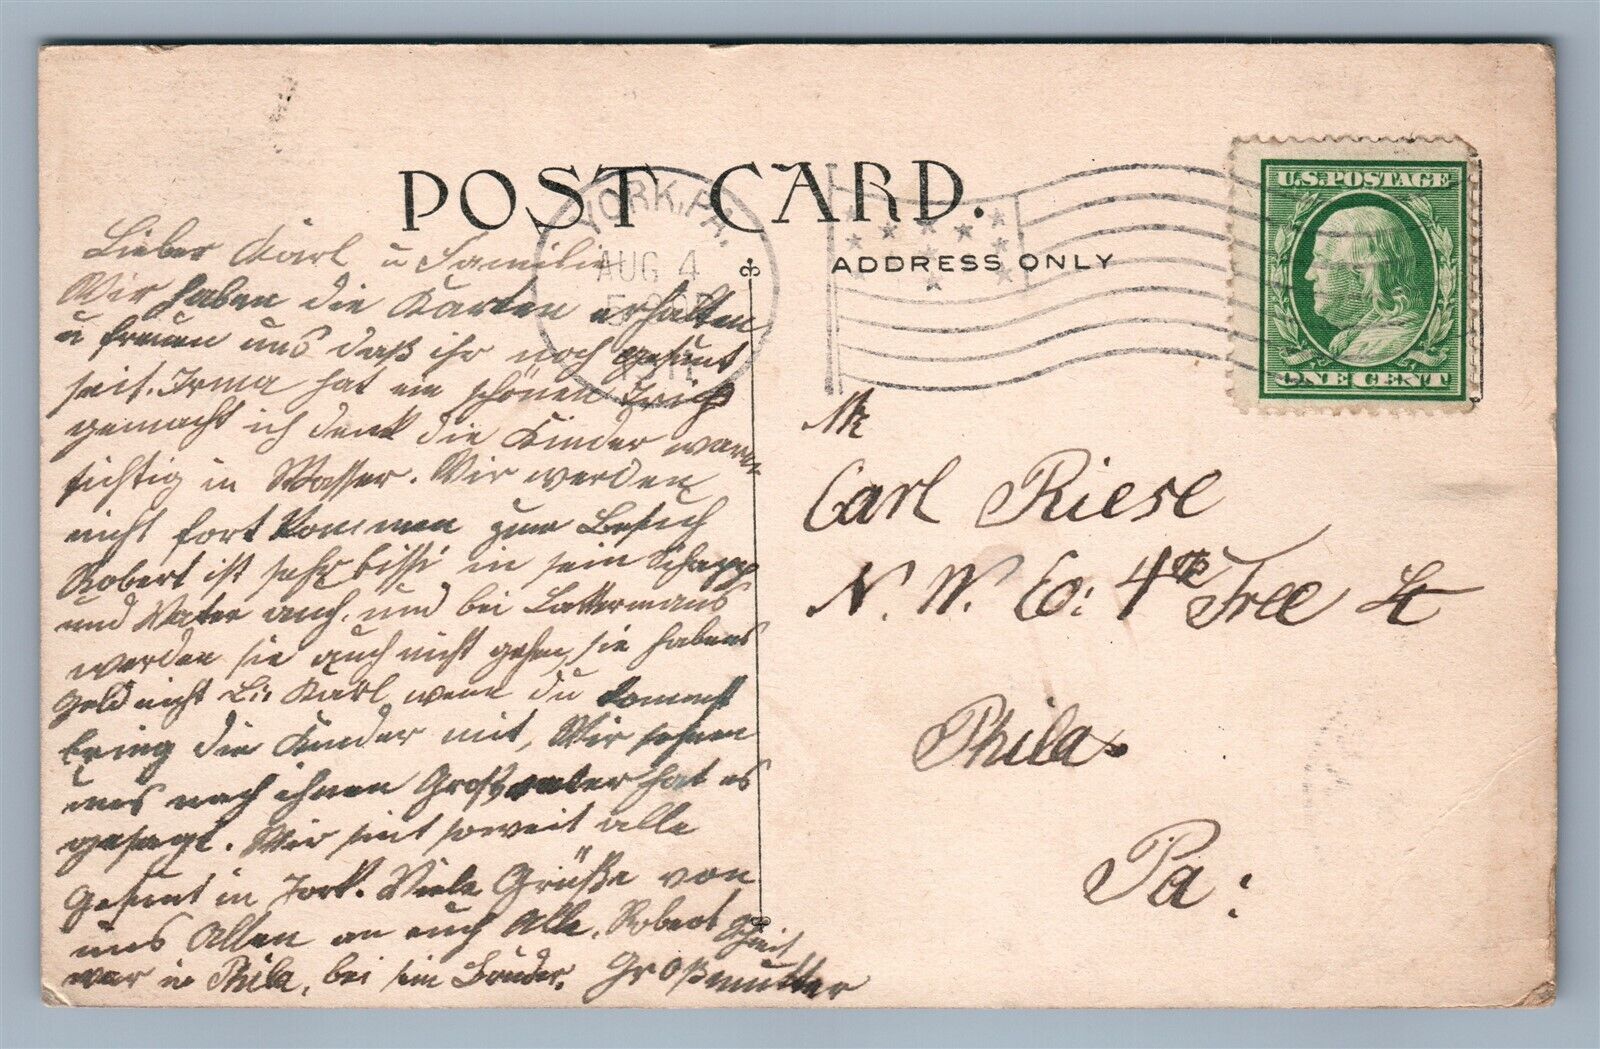 POST CARD.
ADDRESS ONLY
YORK, PA.
AUG 4
1911
U.S. POSTAGE
ONE CENT
Lieber Karl u Familie
Wir haben die Karten erhalten
u freuen uns daß ihr noch gesunt
seit. Irma hat ein schönen
gemacht ich denk die Kinder waren
sichtig in Wasser. Wir werden
nicht fort kommen zum Besuch
Robert ist sehr bissi in sein Schapp
und Vater auch. und bei Lattermans
werden sie auch nicht gehen, sie habens
Geld nicht Li: Karl, wenn du kommst
bring die Kinder mit, Wir sehnen
uns nach ihnen Großvater hat es
gesagt. Wir sint soweit alle
Gesunt in York. Viele Grüße von
uns Allen an euch Alle. Robert
war in Phila, bei sein Bruder. Großmutter
Mr
Carl Riese
N. W. Co: 4th Tree St
Phila.
Pa: